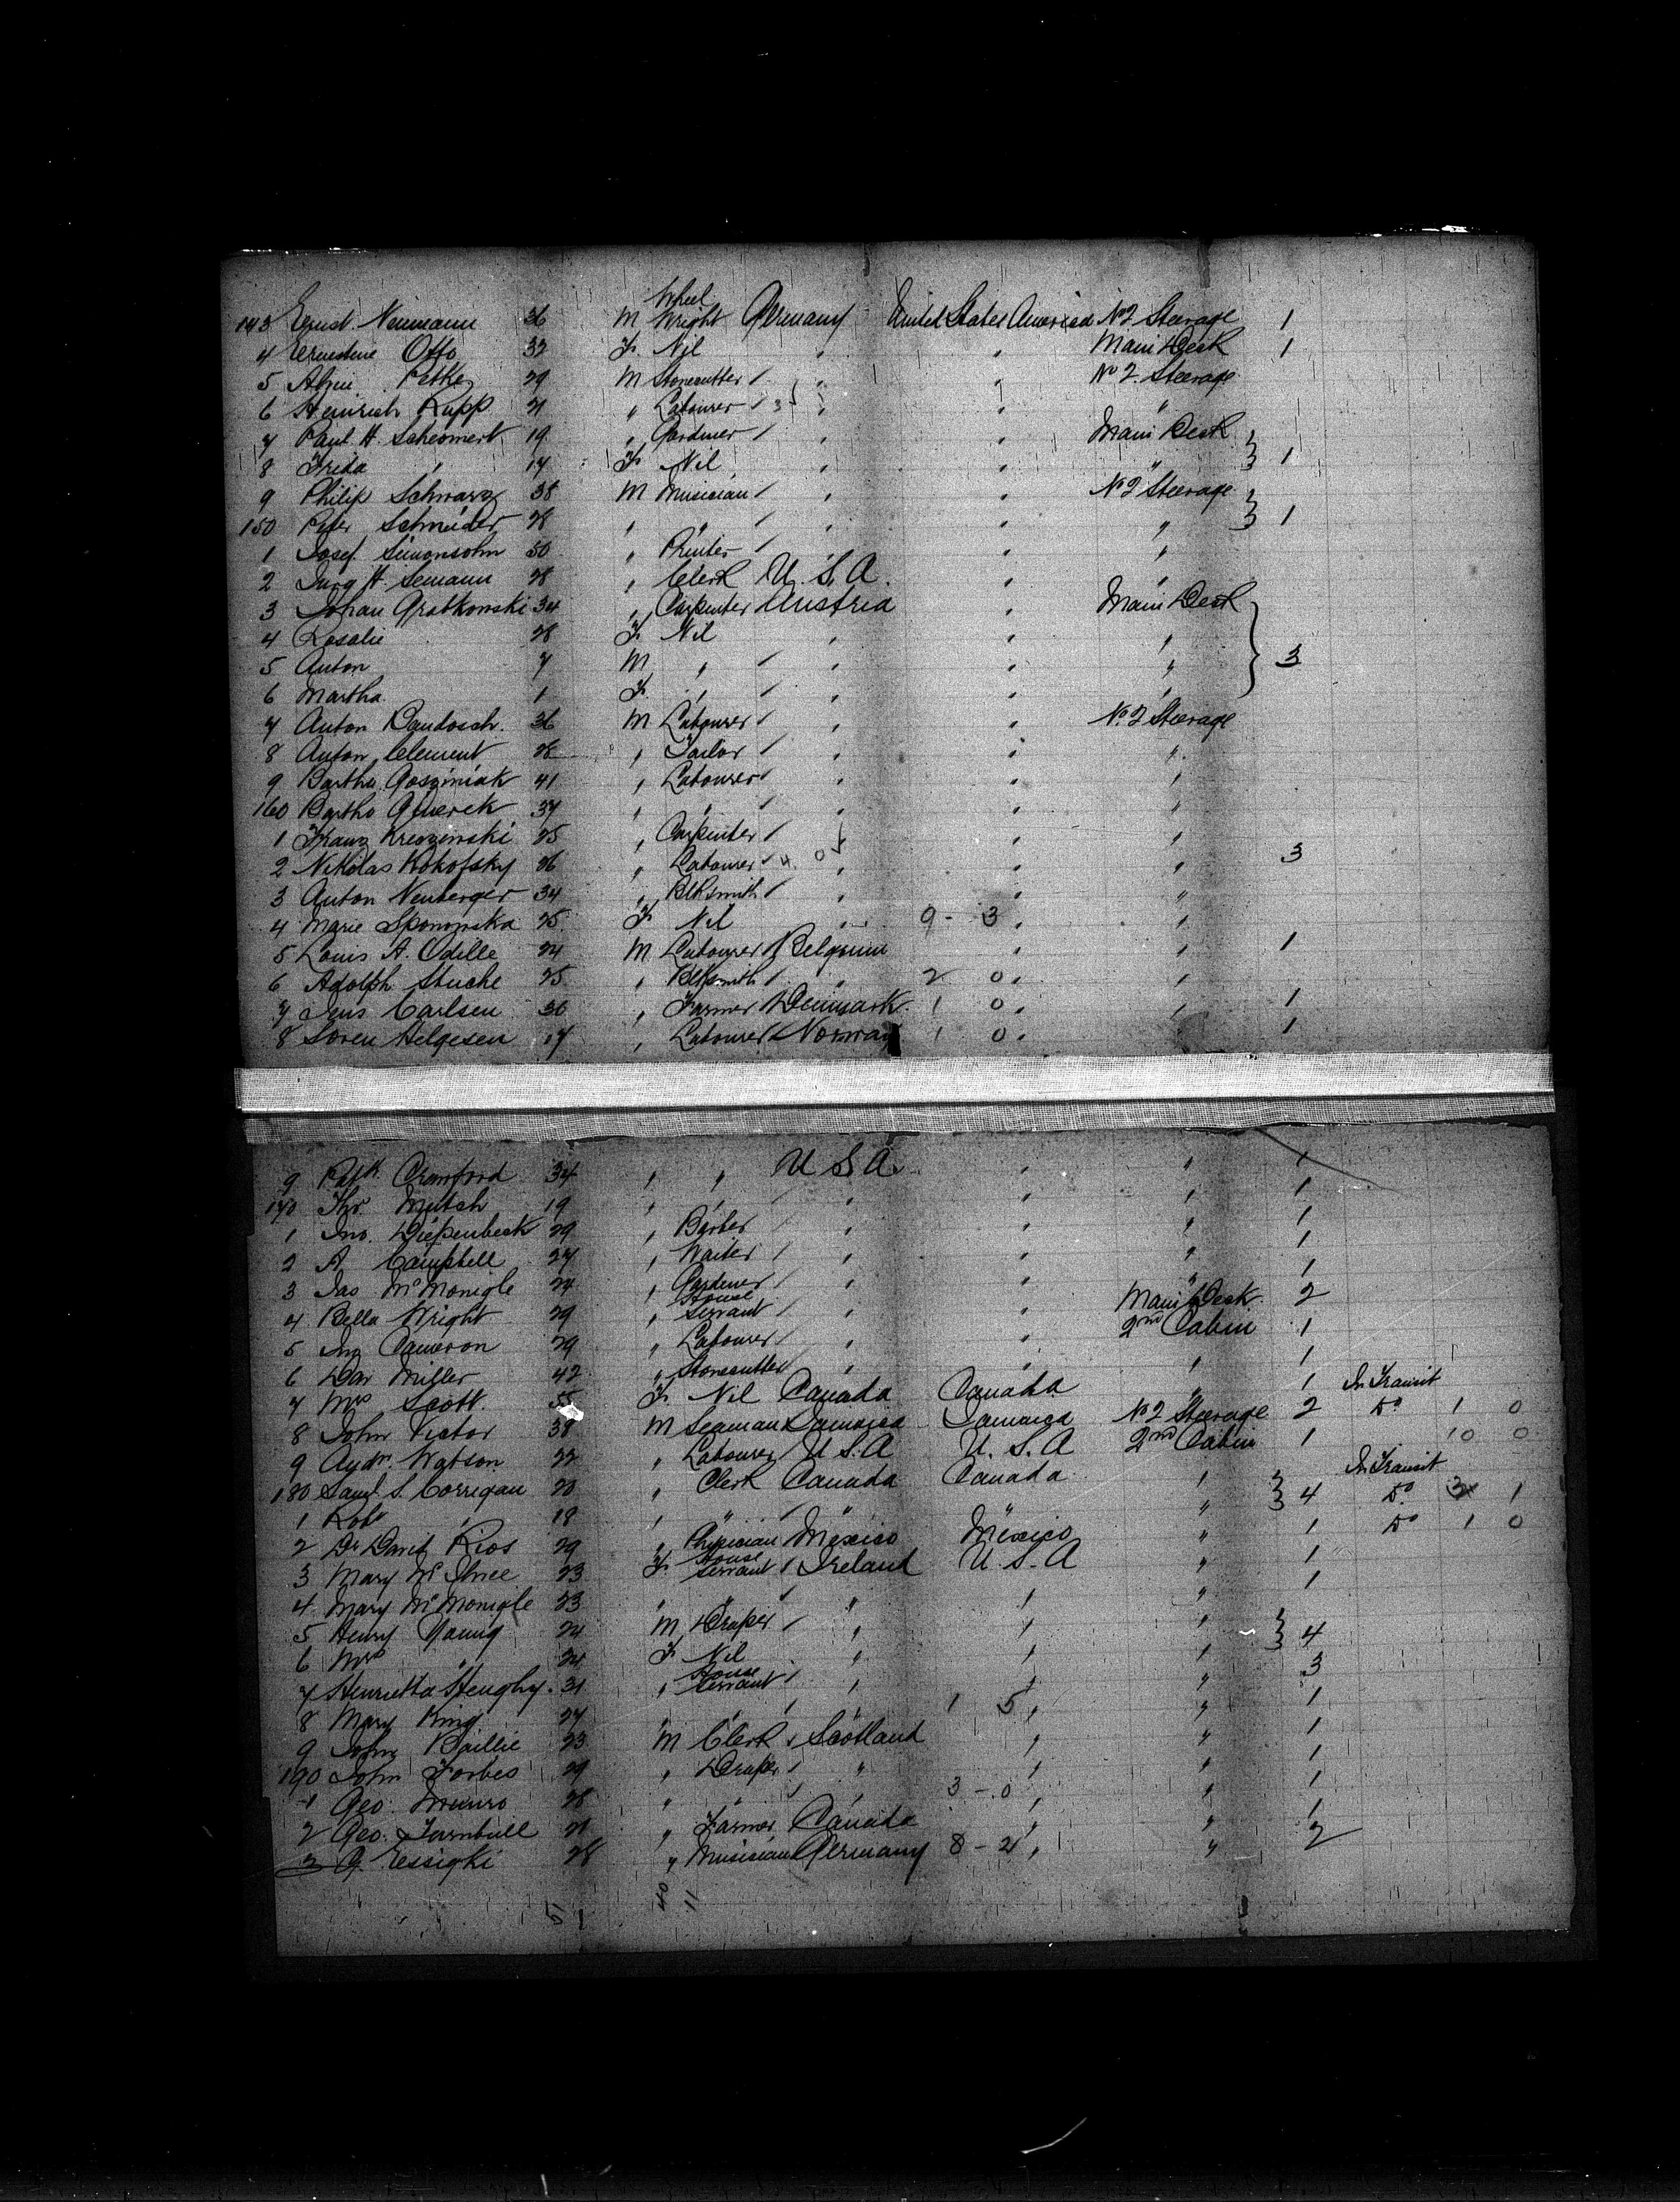 143 Ernst Neumann 36 M Wheel Wright Germany United States America No 2 Steerage 1
4 Ernestine Otto 32 F Nil " " Main Deck 1
5 Petke 29 M Stonecutter " " No 2 Steerage
6 Heinrich Rupp 21 " Labourer 3 " " "
7 Paul H. 19 " Gardner " " Main Deck
8 Frida " 17 F Nil " " " 1
9 Philip Schwarz 38 M Musician " " No 2 Steerage
150 Peter Schneider 28 " " " " " 1
1 Josef Simonsohn 50 " Printer " " "
2 H. Semann 28 " Clerk U.S.A. " "
3 Johan Grabkowski 34 " Carpenter Austria " Main Deck
4 Rosalie 28 F Nil " " "
5 Anton 7 M " " " " 3
6 Martha 1 F " " " "
7 Anton 36 M Labourer " " No 2 Steerage
8 Anton Clement 28 " Tailor " " "
9 Bartho Gosziniak 41 " Labourer " " "
160 Bartho 37 " " " " "
1 Franz 25 " Carpenter " " "
2 Nikolas Kokofsky 26 " Labourer 4 0 " " " 3
3 Anton Neuberger 34 " Blksmith " " "
4 Marie 25 F Nil " 9 - 3 " "
5 Louis A. Odelle 24 M Labourer Belgium " " 1
6 Adolph Stuche 25 " Blksmith " 2 0 " "
7 Jens Carlsen 30 " Farmer Denmark 1 0 " " 1
8 Soren Helgesen 17 " Labourer Norway 1 0 " 1
9 Patk Crawford 34 " " U S A " " 1
170 19 " " " " " 1
1 Jno. Diepenbeck 29 " Barber " " " 1
2 A Campbell 27 " Waiter " " " 1
3 Jas McMonigle 24 " Gardener " " " 1
4 Bella Wright 29 " House Servant " " Main Deck 2
5 Cameron 29 " Labourer " " 2nd Cabin 1
6 Miller 42 " Stonecutter " " " 1
7 Mrs Scott 55 F Nil Canada Canada " 1 In Transit
8 John Victor 38 M Seaman Jamaica Jamaica No 2 Steerage 2 Do 1 0
9 Andw. Watson 22 " Labourer U.S.A U.S.A 2nd Cabin 1 10 0
180 Saml. S. Corrigan 20 " Clerk Canada Canada " In Transit
1 Robt " 18 " " " " 4 Do 1
2 Dr David Rios 29 " Physician Mexico Mexico " 1 Do 1 0
3 Mary 23 F House Servant Ireland U.S.A " 1
4 Mary McMonigle 23 " " " " " 1
5 Henry Young 24 M Draper " " "
6 Mrs " 24 F Nil " " " 4
7 Henrietta 31 " House Servant " " " 3
8 Mary King 24 " " " 1 5 " " 1
9 John Baillie 23 M Clerk Scotland " " 1
190 John Forbes 29 " Draper " " " 1
1 Geo. Munro 28 " " " 3 - 0 " " 1
2 Geo. Turnbull 21 " Farmer Canada " " 1
3 28 " Musician Germany 8 - 2 " " 2